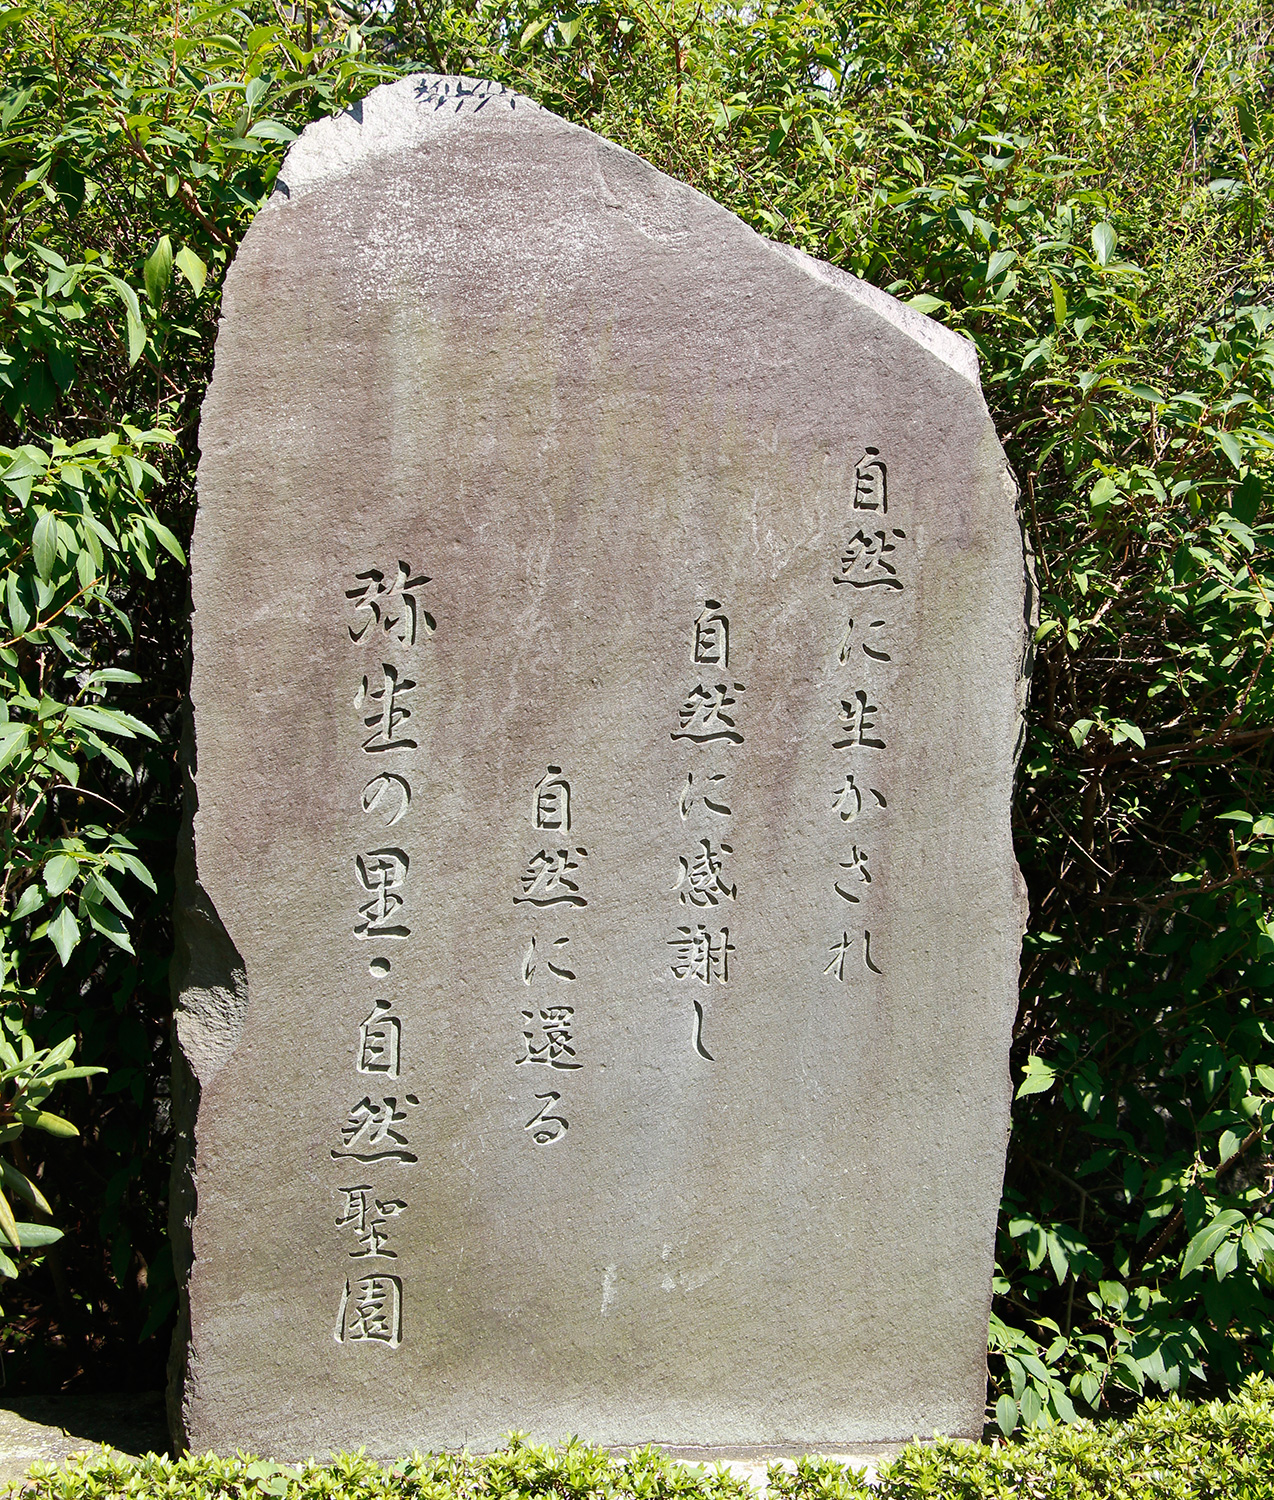 自然に生かされ
自然に感謝し
自然に還る
弥生の里・自然聖園